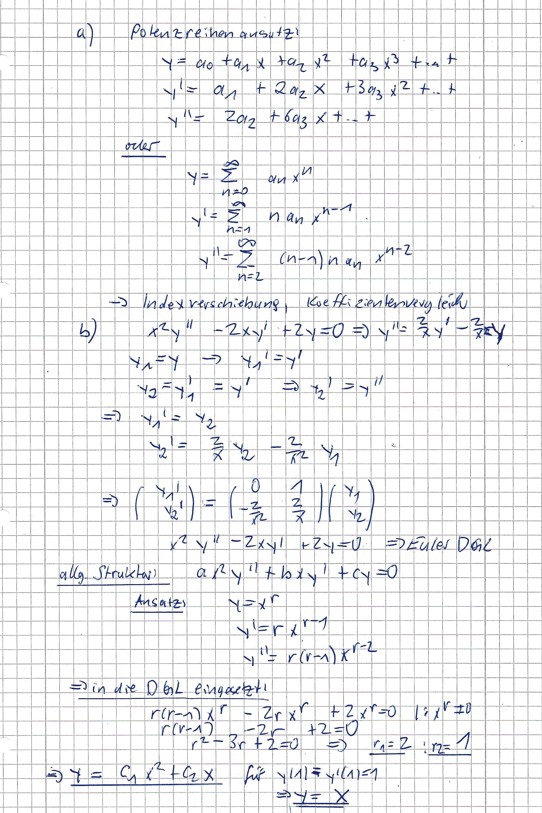 a) Potenzreihenansatz:
y = a0 + a1 x + a2 x² + a3 x³ + ... +
y' = a1 + 2a2 x + 3a3 x² + ... +
y'' = 2a2 + 6a3 x + ... +
oder
y = ∑_{n=0}^{∞} an xⁿ
y' = ∑_{n=1}^{∞} n an x^{n-1}
y'' = ∑_{n=2}^{∞} (n-1) n an x^{n-2}
→ Indexverschiebung, Koeffizientenvergleich
b) x² y'' - 2xy' + 2y = 0 ⇒ y'' = 2/x y' - 2/x² y
y1 = y → y1' = y'
y2 = y1' = y' ⇒ y2' = y''
⇒ y1' = y2
y2' = 2/x y2 - 2/x² y1
⇒ (y1' y2') = (0 1 -2/x² 2/x) (y1 y2)
x² y'' - 2xy' + 2y = 0 ⇒ Euler DGL
allg. Struktur: ax² y'' + bxy' + cy = 0
Ansatz: y = x^r
y' = r x^{r-1}
y'' = r(r-1) x^{r-2}
⇒ in die DGL eingesetzt:
r(r-1) x^r - 2r x^r + 2 x^r = 0 |: x^r ≠ 0
r(r-1) - 2r + 2 = 0
r² - 3r + 2 = 0 ⇒ r1 = 2 ; r2 = 1
⇒ y = C1 x² + C2 x für y(1) = y'(1) = 1
⇒ y = x